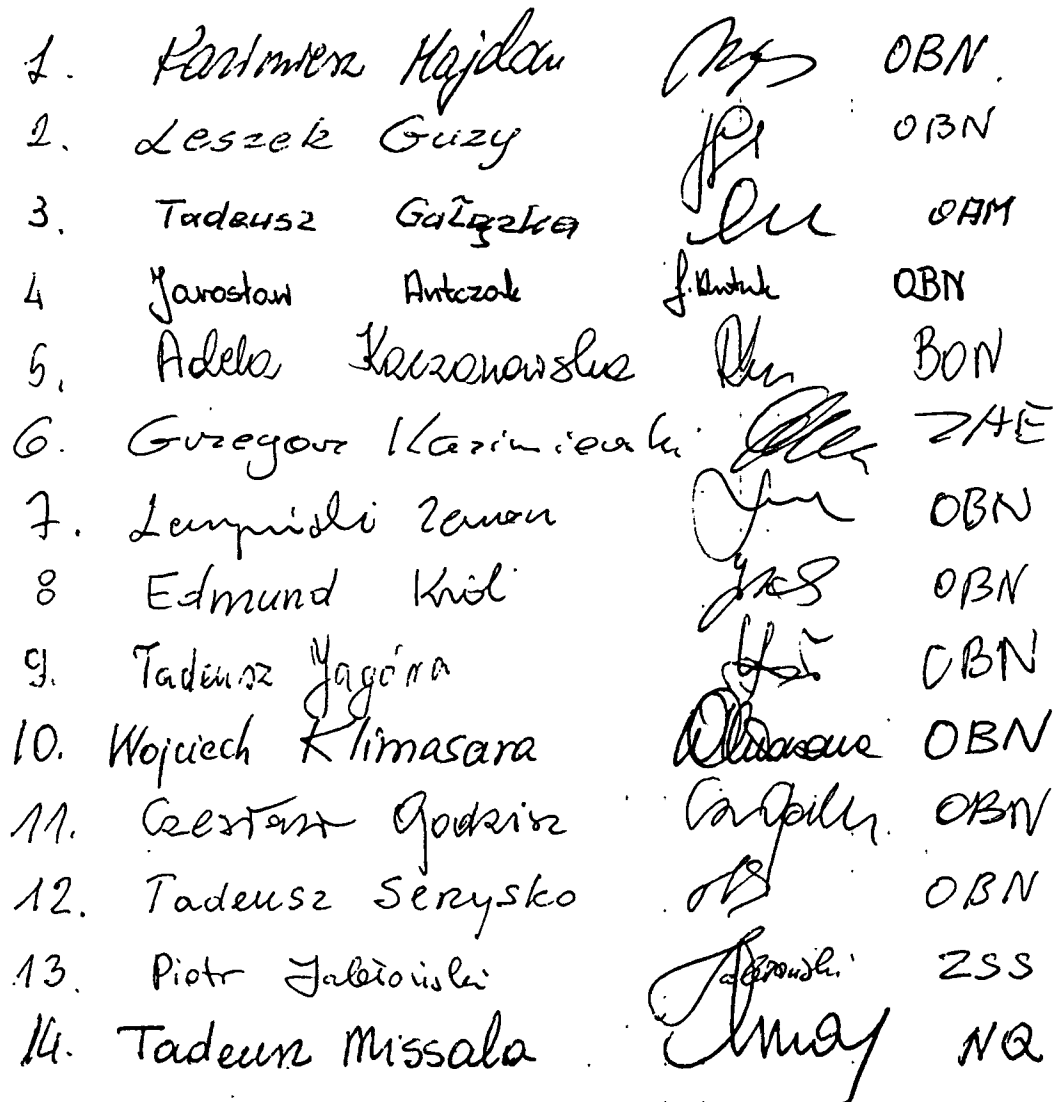 1. Kazimierz Majdan OBN.
2. Leszek Guzy OBN
3. Tadeusz Gałązka OAM
4 Jarosław Antczak J. Antczak OBN
5. Adela Kaczanowska BON
6. Grzegorz Kazimierski ZAE
7. Zenon OBN
8 Edmund Król OBN
9. Tadeusz Jagóra OBN
10. Wojciech Klimasara WKlimasara OBN
11. Czesław Godzisz OBN
12. Tadeusz Serzysko OBN
13. Piotr Jabłoński Jabłoński ZSS
14. Tadeusz Missala NQ